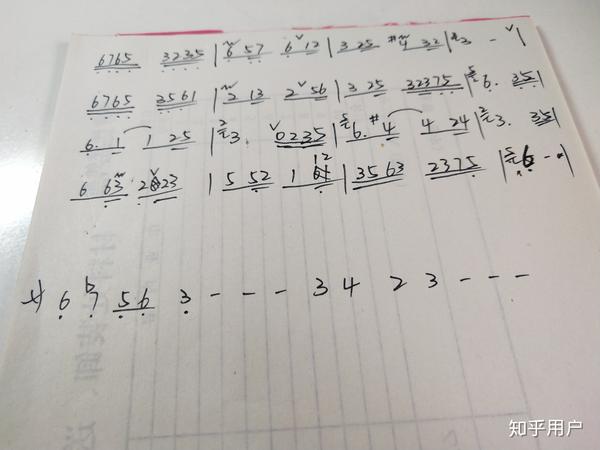 6765 3235 | 6 57 6 12 | 3 25 #4 32 | 3 - |
6765 3561 | 2 13 2 56 | 3 25 32375 | 6. 35 |
6. 1 1 25 | 3. 0235 | 6. #4 4 24 | 3. 35 |
6 63 2323 | 5 52 1 12 | 3563 2375 | 6 - - |
サ 6 7 56 3 - - - 3 4 2 3 - - -
知乎用户